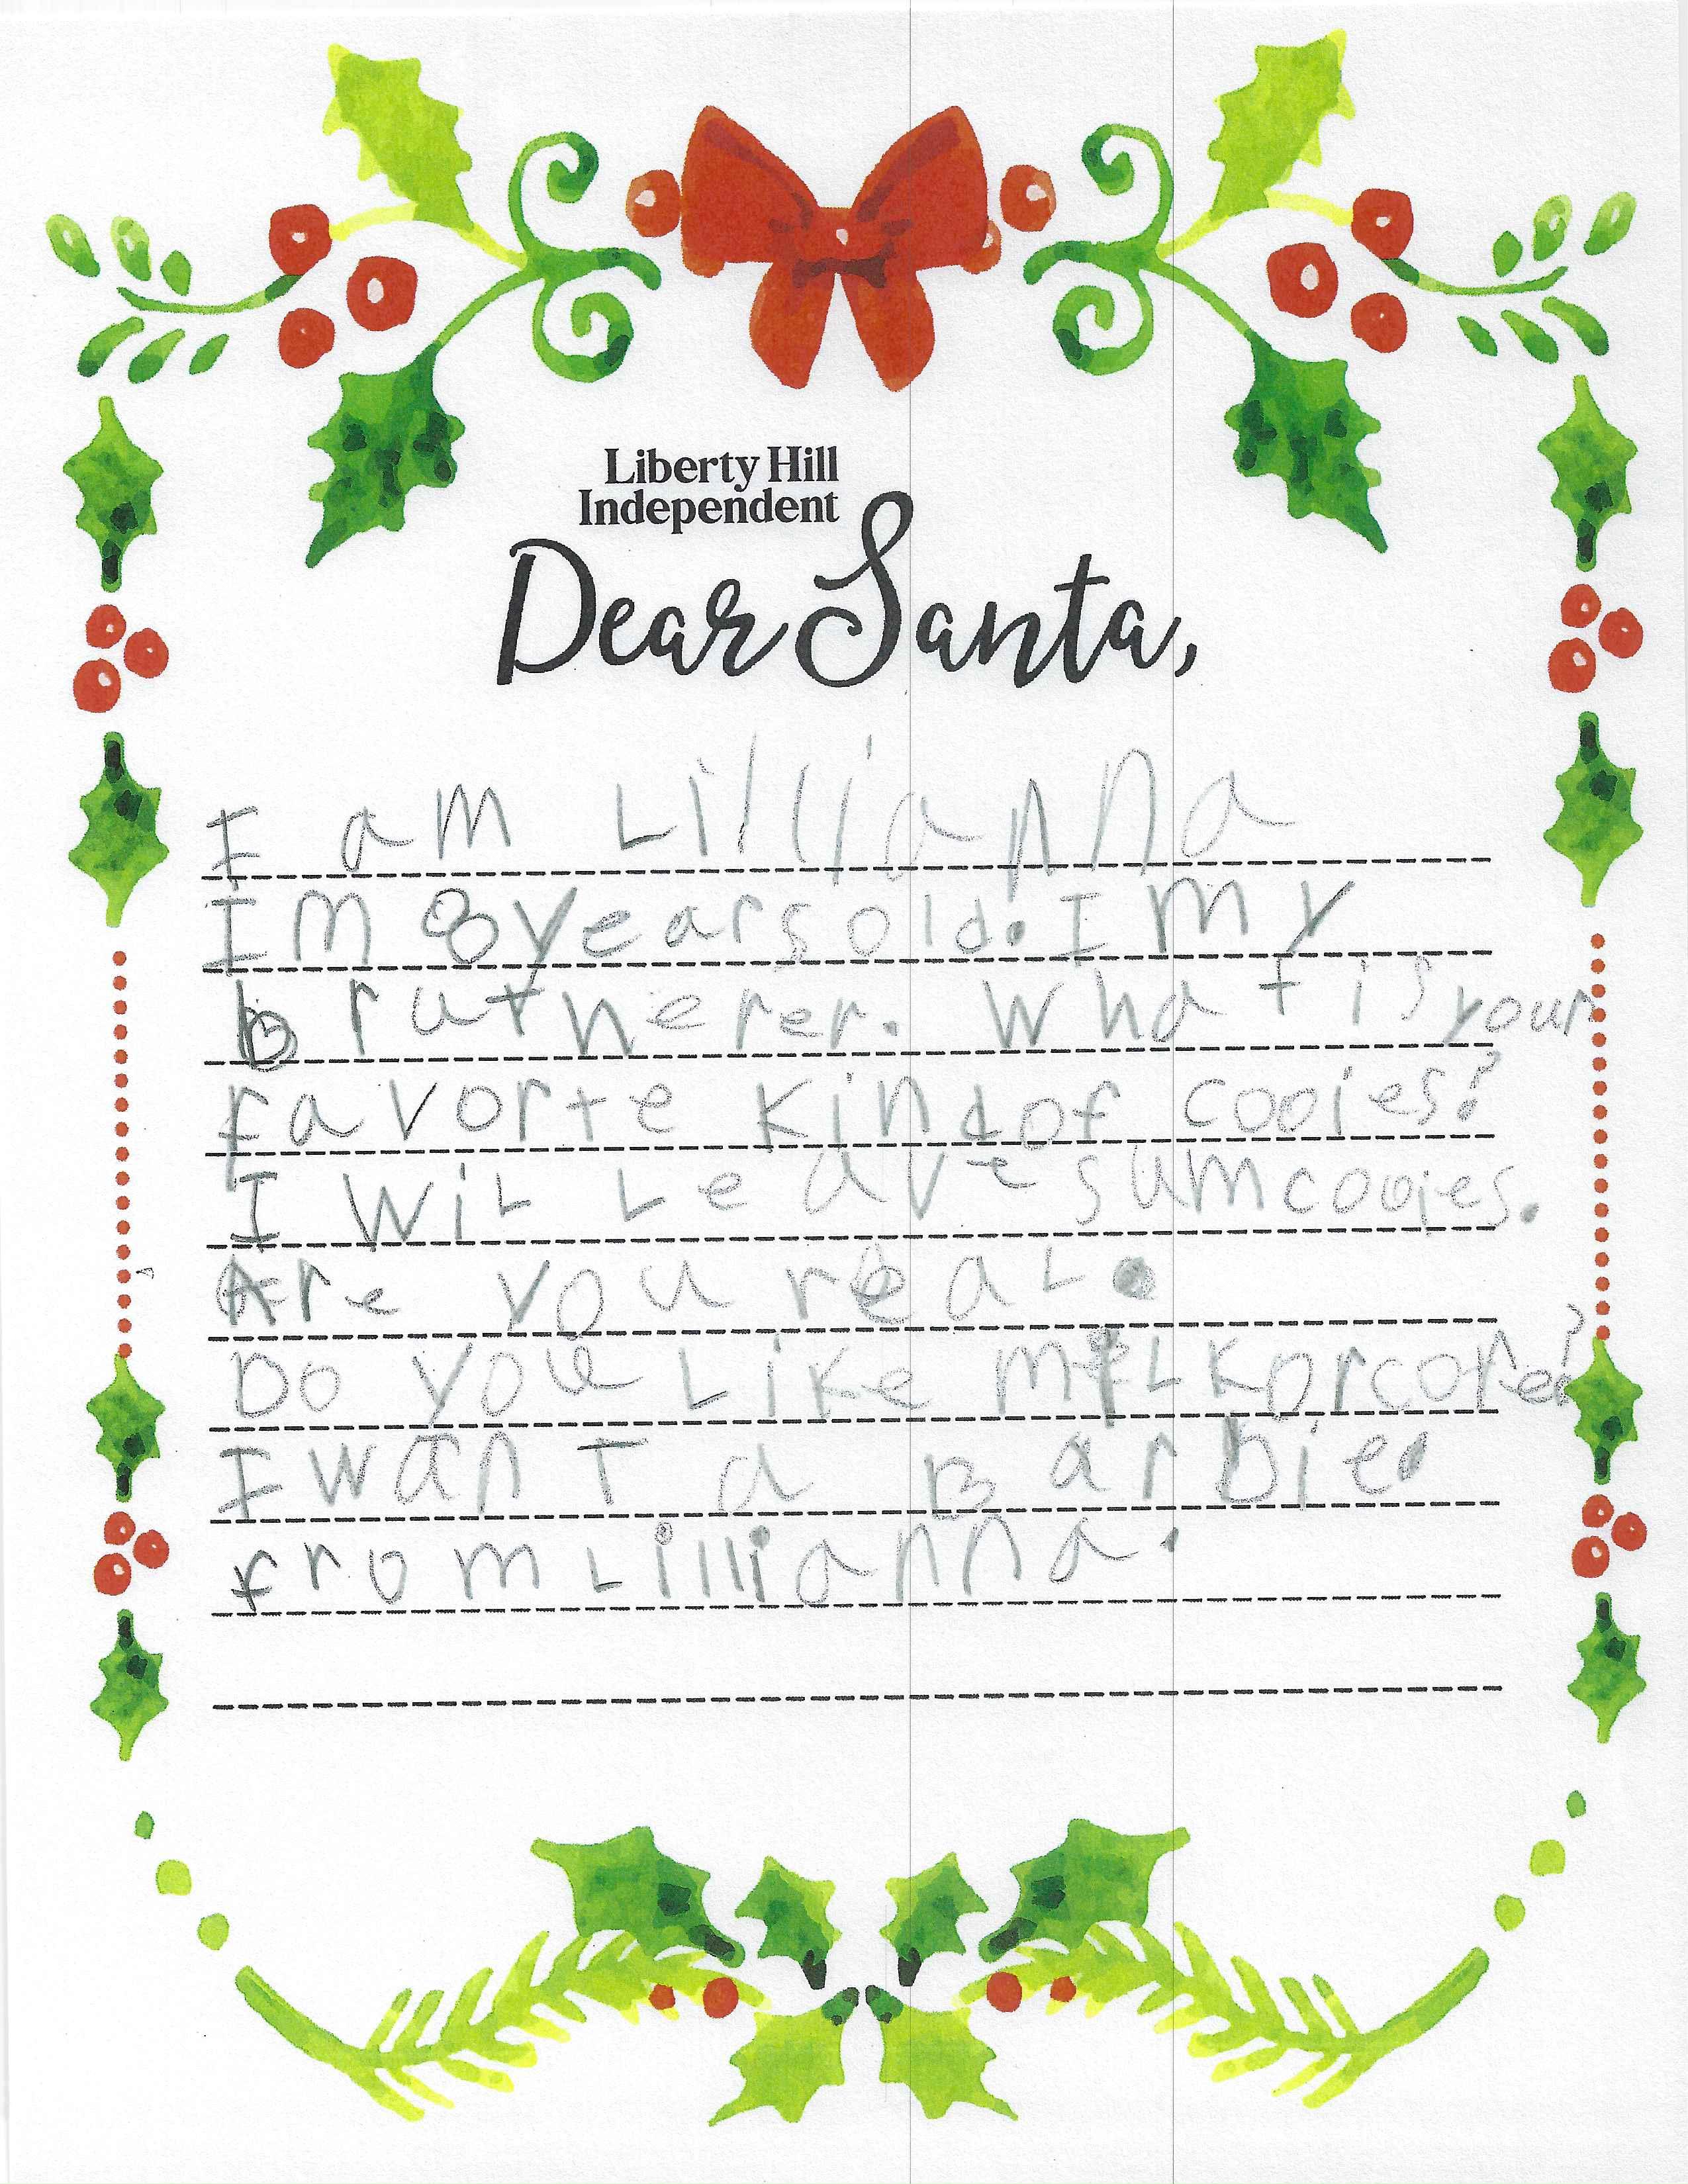 Liberty Hill
Independent
Dear Santa,
I am Lillianna
Im 8 years old. I my
brutherer. What is your
favorte kind of cooies?
I wil leave sum cooies.
Are you real.
Do you like milk or cofe?
I want a Barbie.
from Lillianna.